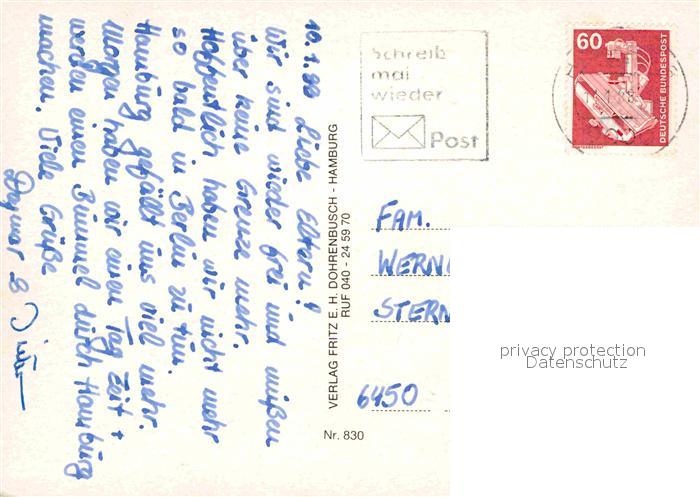 10.1.82 Liebe Eltern!
Wir sind wieder frei und müßen
über keine Grenze mehr.
Hoffentlich haben wir nicht mehr
so bald in Berlin zu tun.
Hamburg gefällt uns viel mehr.
Morgen haben wir einen Tag Zeit +
werden einen Bummel durch Hamburg
machen. Viele Grüße
Dagmar &
VERLAG FRITZ E. H. DOHRENBUSCH - HAMBURG
RUF 040 - 24 59 70
Nr. 830
Schreib
mal
wieder
Post
60
DEUTSCHE BUNDESPOST
FAM.
WERN
STERN
6450
privacy protection
Datenschutz